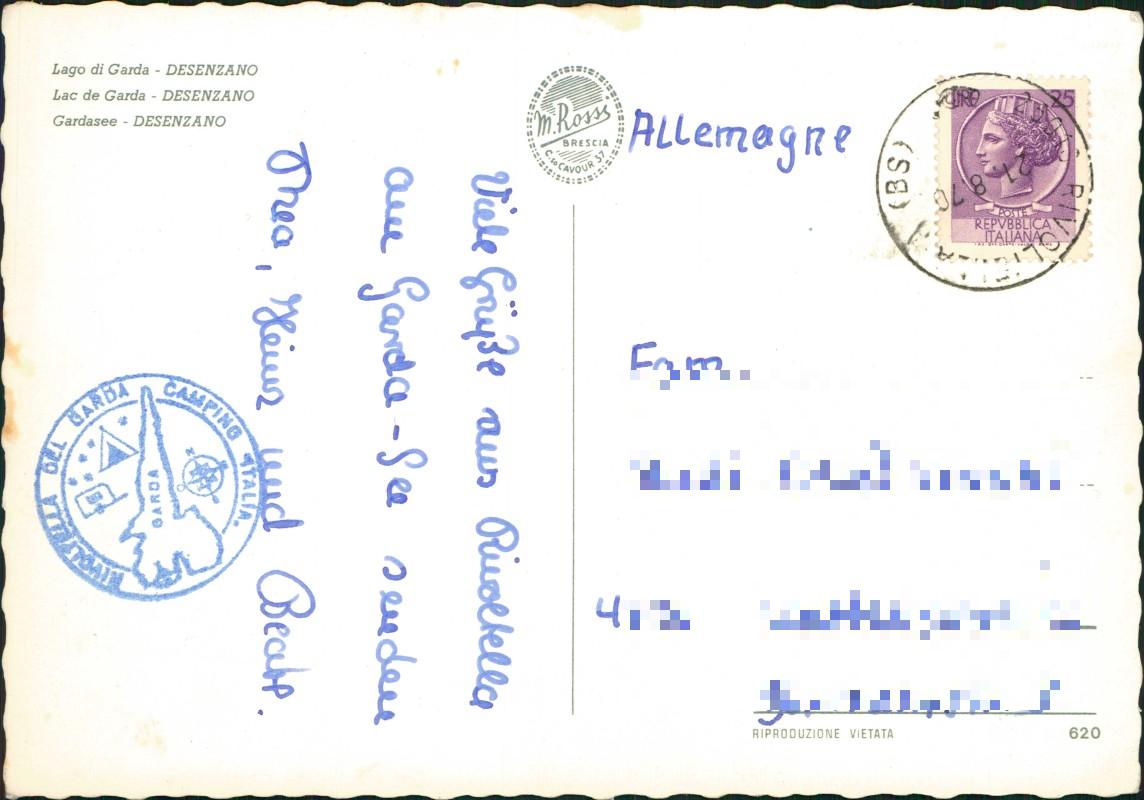 Lago di Garda - DESENZANO
Lac de Garda - DESENZANO
Gardasee - DESENZANO
m. Rossi
BRESCIA
C.so CAVOUR 37
Allemagne
LIRE 25
POSTE
REPVBBLICA
ITALIANA
RIVOLTELLA (BS)
21.8.70
Viele Grüße aus Rivoltella
am Garda-See senden
Thea, Heinz und Beate.
RIVOLTELLA DEL GARDA CAMPING ITALIA
GARDA
Fam.
RIPRODUZIONE VIETATA
620